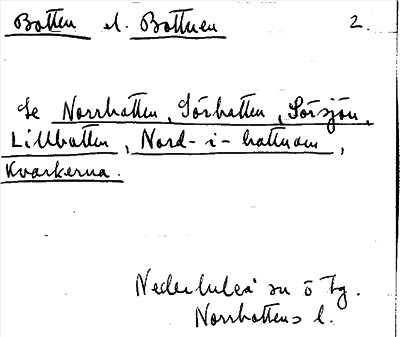 Botten el. Bottnen 2.
Se Norrbotten, Sörbotten, Sörsjön,
Lillbotten, Nord-i-bottnom,
Kvarkerna.
Nederluleå sn ö tg.
Norrbottens l.